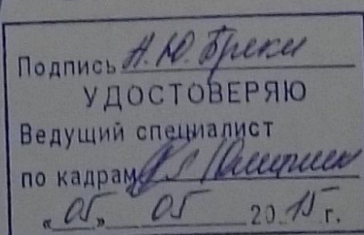 Подпись А.Ю. Бреки
УДОСТОВЕРЯЮ
Ведущий специалист
по кадрам
«05» 05 2015 г.